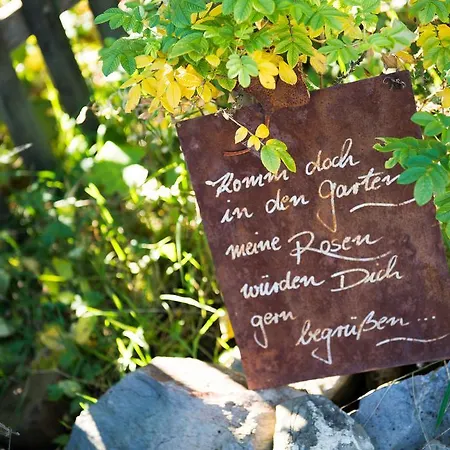 Komm doch
in den Garten,
meine Rosen
würden Dich
gern
begrüßen...